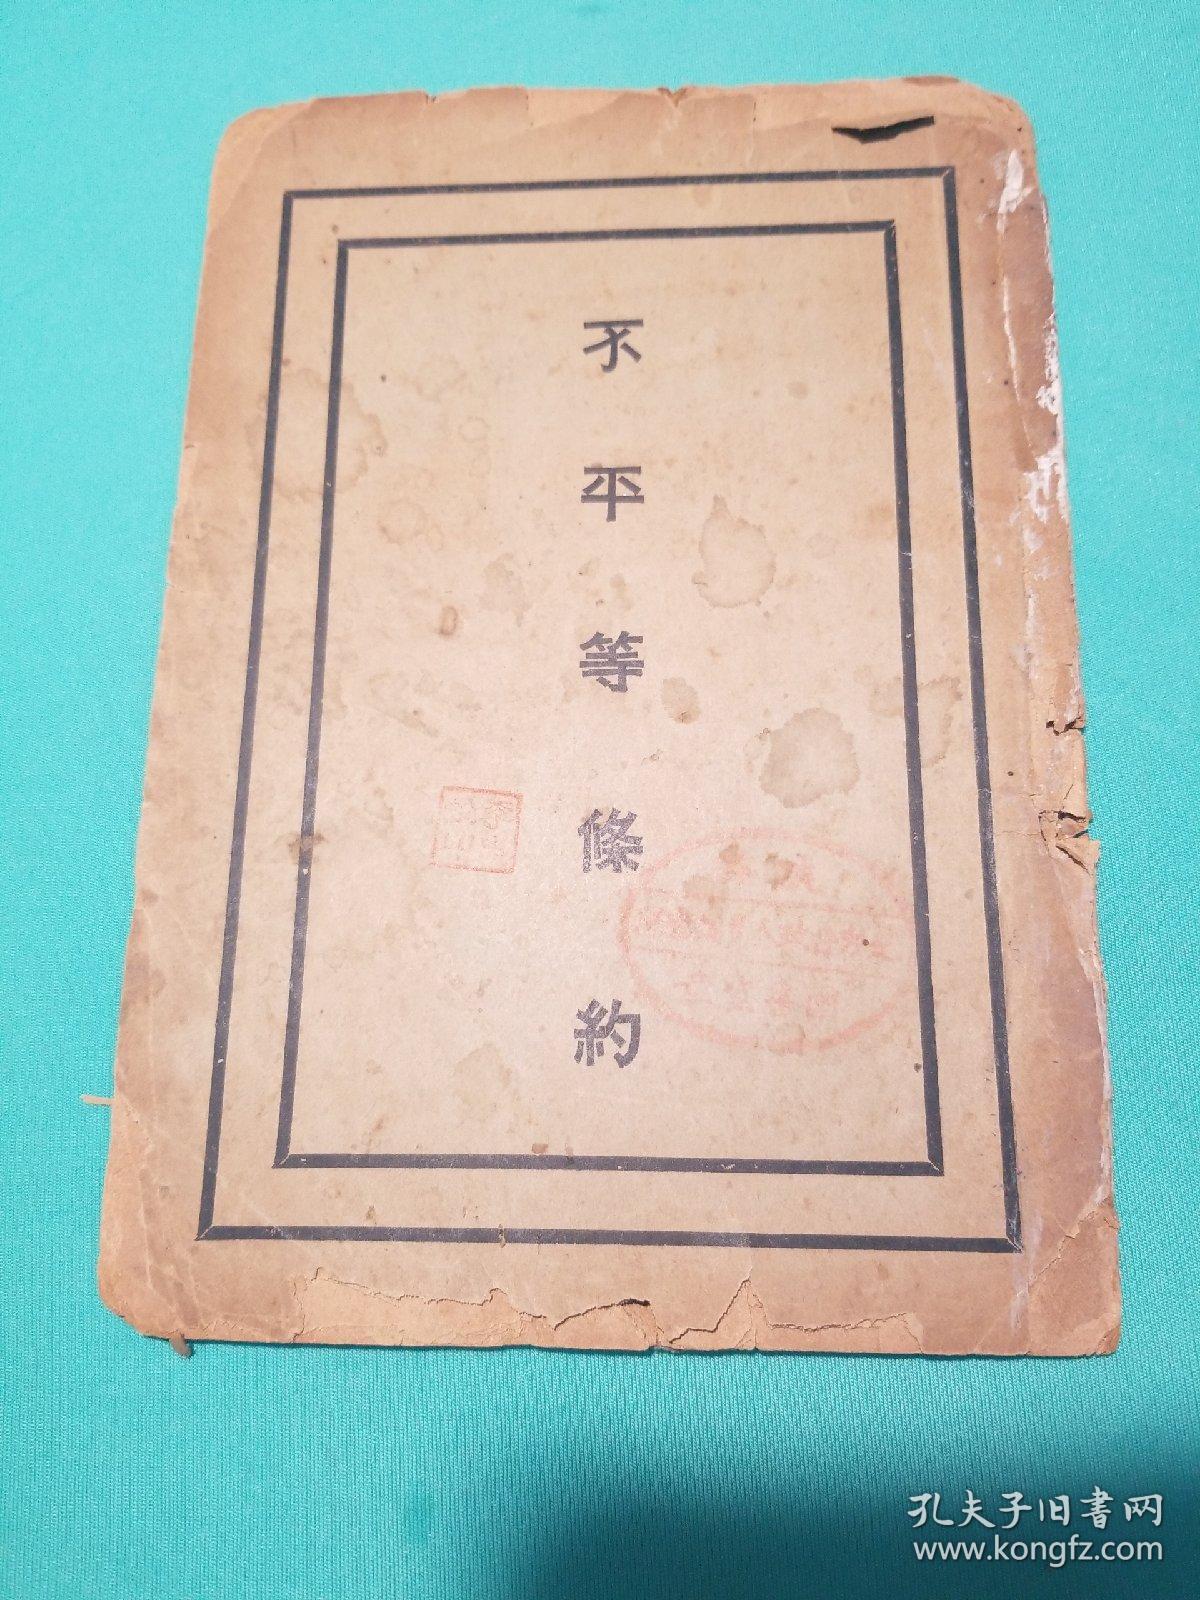 不平等條約
孔夫子旧書网
www.kongfz.com